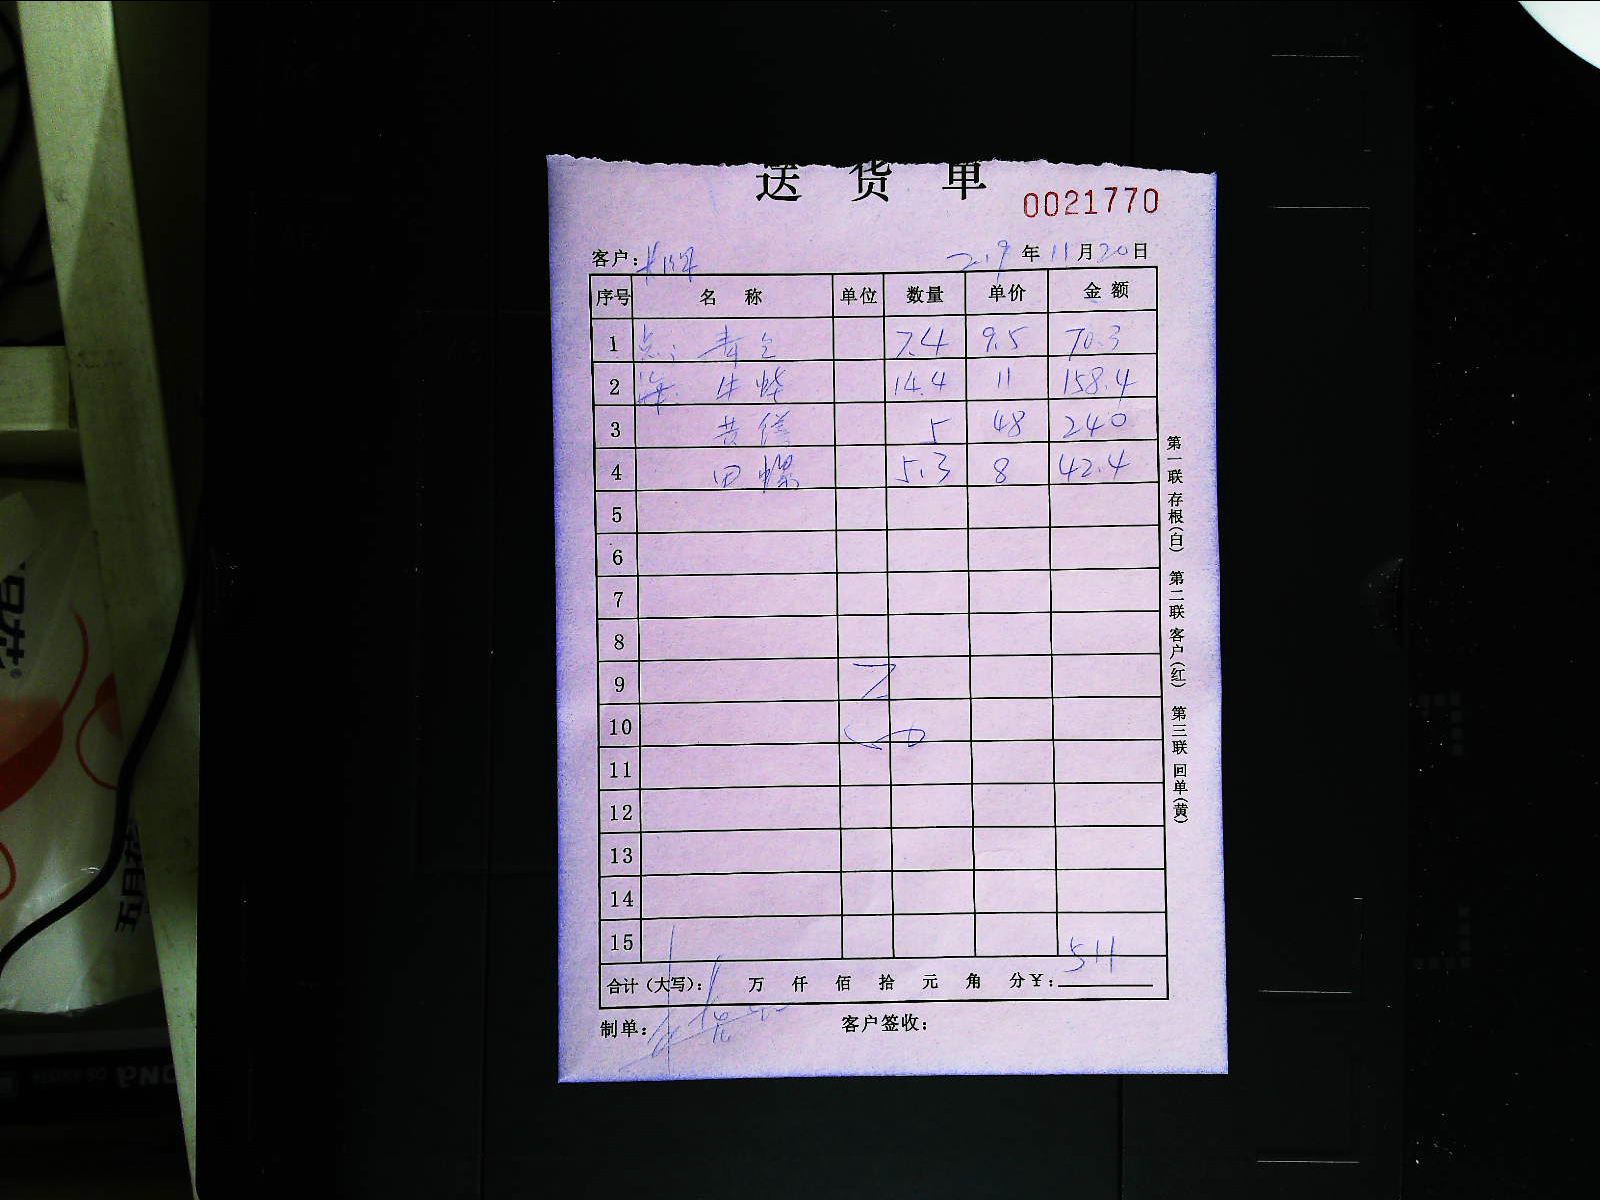 送 货 单
0021770
客户: 2019 年 11 月 20 日
序号 名 称 单位 数量 单价 金 额
1 点: 青 7.4 9.5 70.3
2 海: 牛 14.4 11 158.4
3 5 48 240
4 田螺 5.3 8 42.4
5
6
7
8
9
10
11
12
13
14
15
合计（大写）： 万 仟 佰 拾 元 角 分 ¥: 511
制单: 客户签收:
第一联 存根(白) 第二联 客户(红) 第三联 回单(黄)